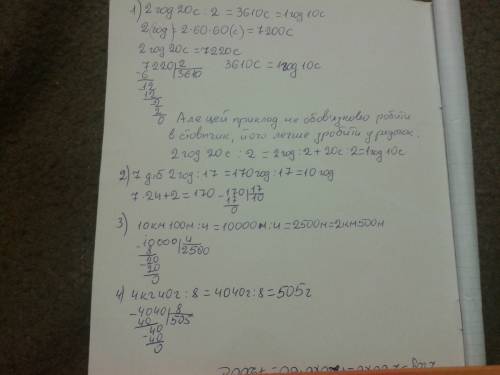 1) 2 год 20с : 2 = 3610с = 1год 10с
2(год) = 2·60·60(с) = 7200с
2 год 20с = 7220с
7220 | 2 3610с = 1год 10с
-6 3610
12
12
2
2
0
Але цей приклад не обов'язково робити
в стовпчик, його легше зробити у рядок:
2 год 20с : 2 = 2год : 2 + 20с : 2 = 1год 10с
2) 7 діб 2год : 17 = 170год : 17 = 10 год
7·24+2 = 170 -170 | 17
17 10
0
3) 10км 100м : 4 = 10000м : 4 = 2500м = 2км 500м
-10000 | 4
8 2500
-20
20
0
4) 4кг 40г : 8 = 4040г : 8 = 505г
-4040 | 8
40 505
-40
40
0